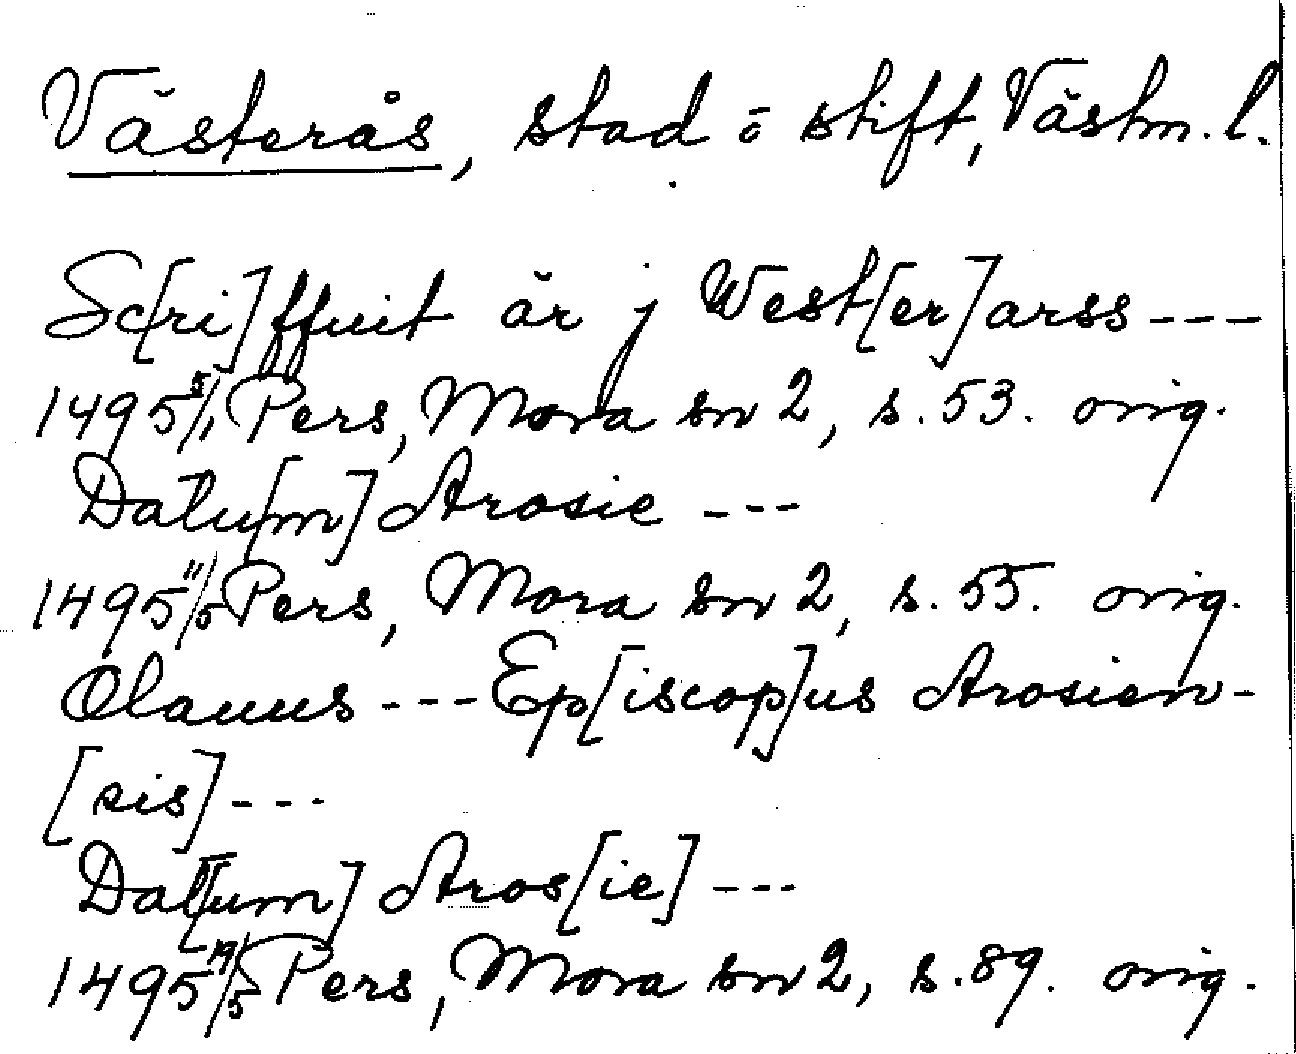 Västerås, stad o stift, Västm. l.
Sc[ri]ffuit är j West[er]arss ---
1495 5/1 Pers, Mora sn 2, s. 53. orig.
Datu[m] Arosie ---
1495 11/5 Pers, Mora sn 2, s. 55. orig.
Olauus --- Ep[iscop]us Arosien-
[sis] ---
Dat[um] Aros[ie] ---
1495 19/5 Pers, Mora sn 2, s. 89. orig.